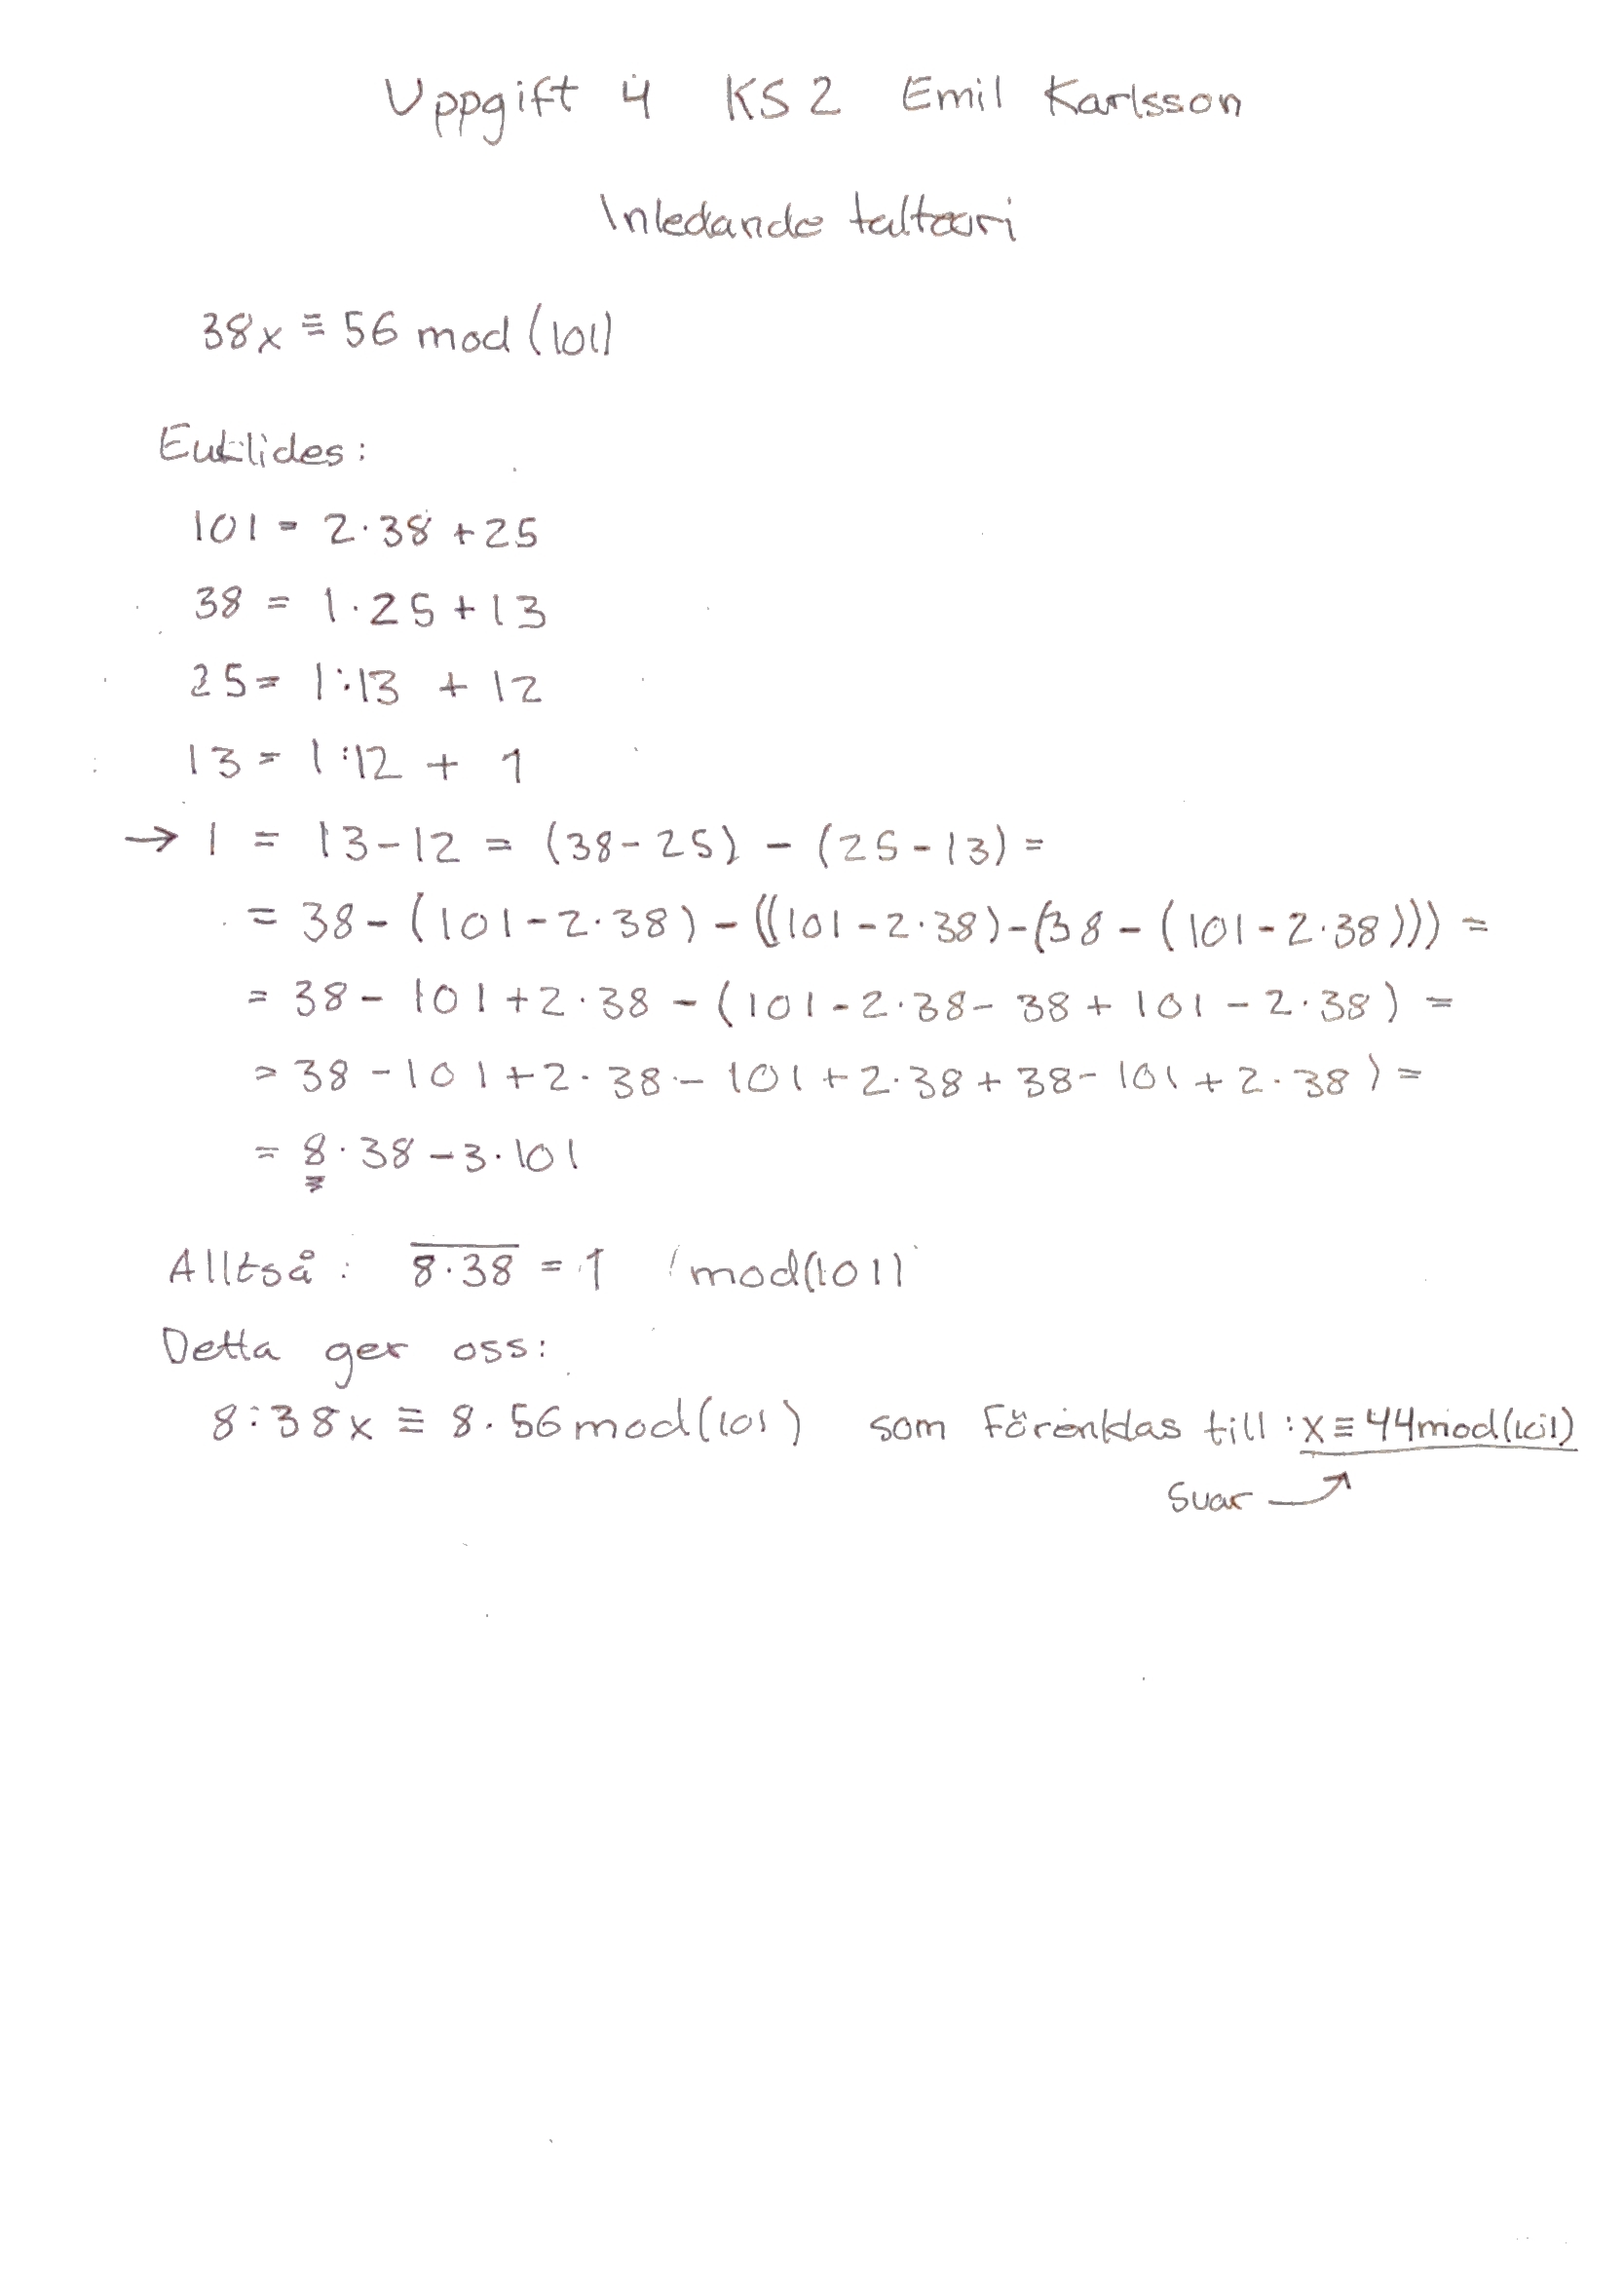 Uppgift 4 KS2 Emil Karlsson
Inledande taltoori
38x ≡ 56 mod (101)
Euklides:
101 = 2·38 + 25
38 = 1·25 + 13
25 = 1·13 + 12
13 = 1·12 + 1
→ 1 = 13-12 = (38-25) - (25-13) =
= 38-(101-2·38) - ((101-2·38)-(38-(101-2·38))) =
= 38- 101+2·38 - (101-2·38- 38 + 101 - 2·38) =
= 38 -101+2·38 - 101+2·38+38-101+2·38) =
= 8·38-3·101
Alltså: 8·38 = 1 mod(101)
Detta ger oss:
8·38x ≡ 8·56 mod(101) som förenklas till: x ≡ 44 mod(101)
Svar →